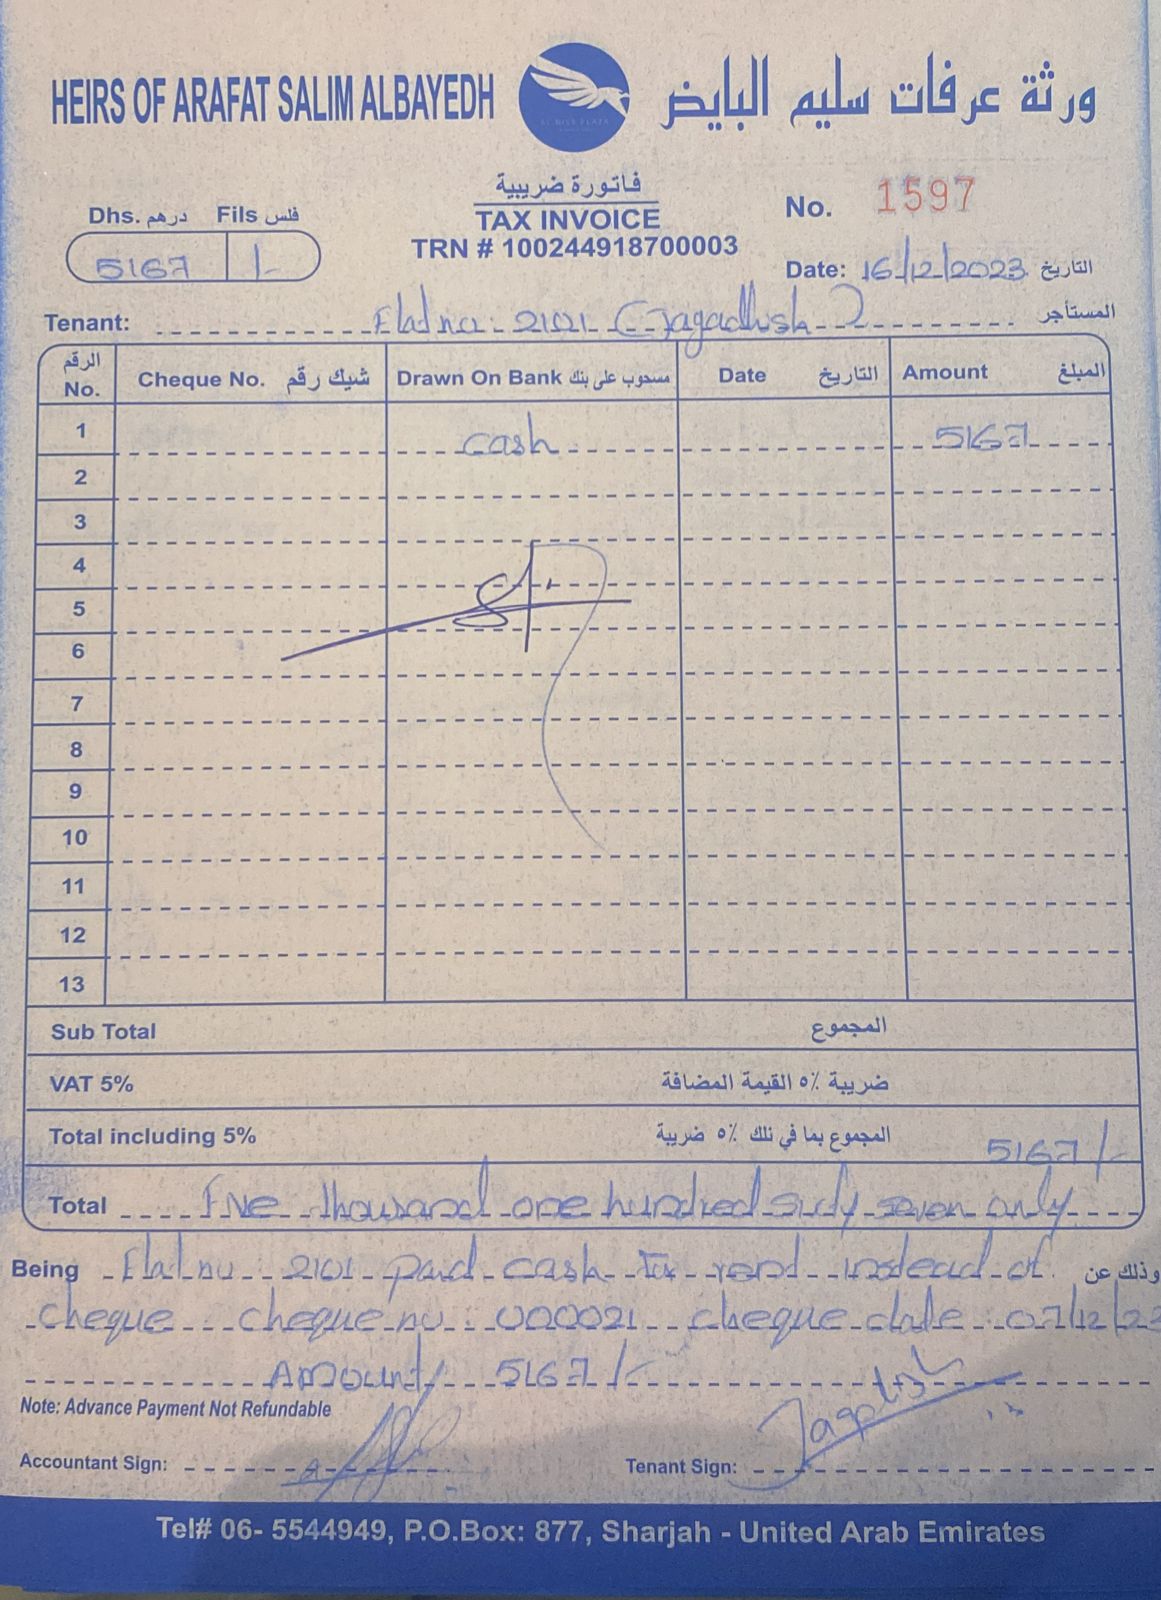 HEIRS OF ARAFAT SALIM ALBAYEDH
ورثة عرفات سليم البايض
AL NILE PLAZA
فاتورة ضريبية
TAX INVOICE
TRN # 100244918700003
No. 1597
Dhs. درهم Fils فلس
5167 /-
Date: 16/12/2023 التاريخ
Tenant: Flat no: 2101 (Jagadhish) المستأجر
الرقم No. Cheque No. شيك رقم Drawn On Bank مسحوب على بنك Date التاريخ Amount المبلغ
1 cash 5167
2
3
4
5
6
7
8
9
10
11
12
13
Sub Total المجموع
VAT 5% ضريبة ٥٪ القيمة المضافة
Total including 5% المجموع بما في ذلك ٥٪ ضريبة 5167/-
Total Five thousand one hundred sixty seven only
Being Flat no 2101 paid cash for rent instead of وذلك عن
cheque cheque no 000021 cheque date 07/12/23
Amount 5167/-
Note: Advance Payment Not Refundable
Accountant Sign:
Tenant Sign:
Tel# 06- 5544949, P.O.Box: 877, Sharjah - United Arab Emirates